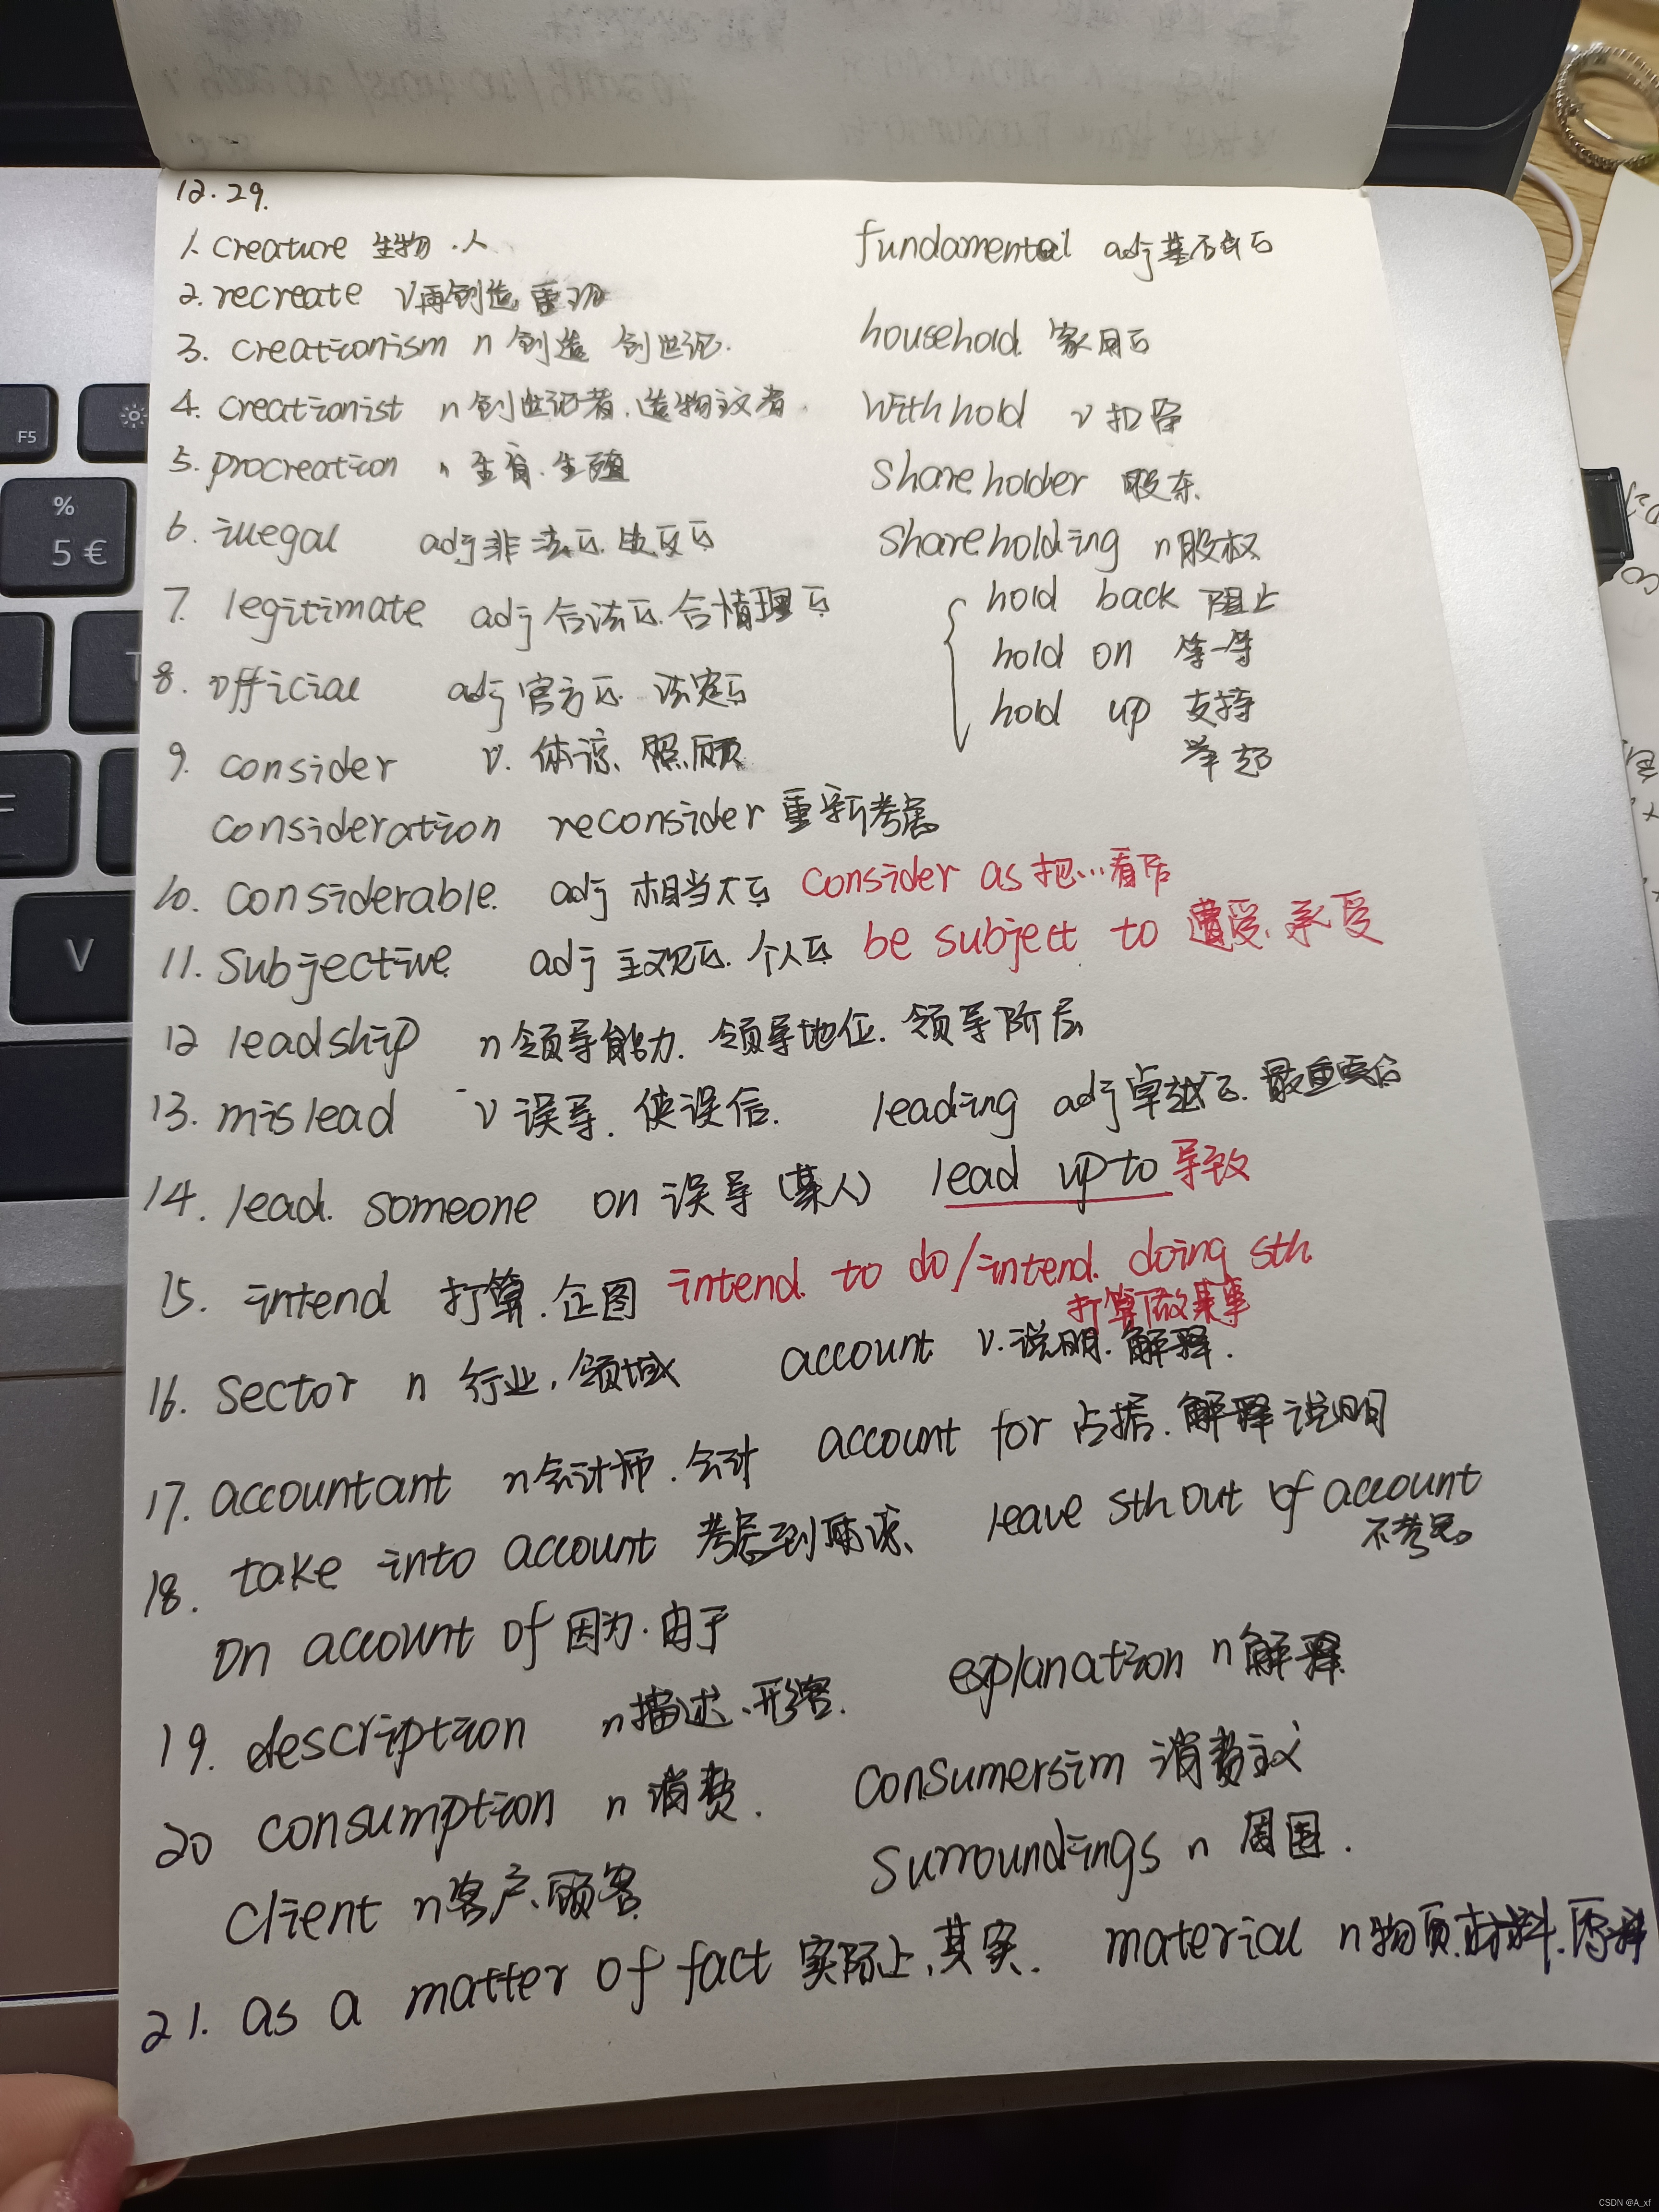 12.29.
1. creature 生物.人 fundamental adj基本的
2. recreate v再创造 重现
household 家用的
3. creationism n 创造 创世论.
4. creationist n 创世论者.造物主义者
withhold v 扣留
5. procreation n 生育.生殖
shareholder 股东.
6. illegal adj非法的.违反的
shareholding n股权
7. legitimate adj合法的.合情理的
hold back 阻止
hold on 等一等
8. official adj官方的.法定的
hold up 支持
举起
9. consider v. 体谅、照顾
consideration reconsider 重新考虑
10. considerable. adj 相当大的 consider as 把…看作
11. Subjective adj 主观的.个人的 be subject to 遭受.承受
12 leadship n领导能力.领导地位.领导阶层
13. mislead v 误导.使误信. leading adj卓越的.最重要的
14. lead someone on 误导(某人) lead up to 导致
15. intend 打算.企图 intend to do/intend doing sth.
打算做某事
16. Sector n 行业,领域 account v.说明.解释.
17. accountant n会计师.会计 account for 占据.解释说明
18. take into account 考虑到 leave sth out of account
不考虑
on account of 因为.由于
19. description n描述、形容. explanation n解释
20 consumption n 消费. consumersim 消费主义
client n客户、顾客 surroundings n 周围.
21. as a matter of fact 实际上,其实. material n物质.材料.原料
F5
%
5 €
V
CSDN @A_xf